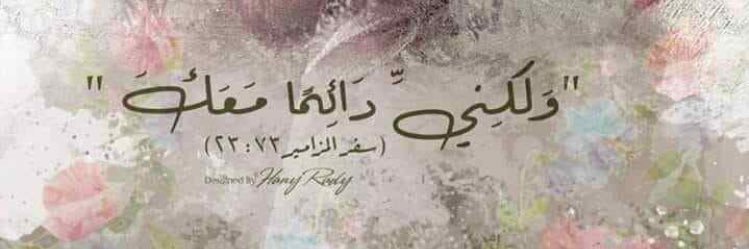 "وَلكِنِّي دَائِمًا مَعَكَ"
(سفر المزامير ٧٣: ٢٣)
Designed By Hany Rady